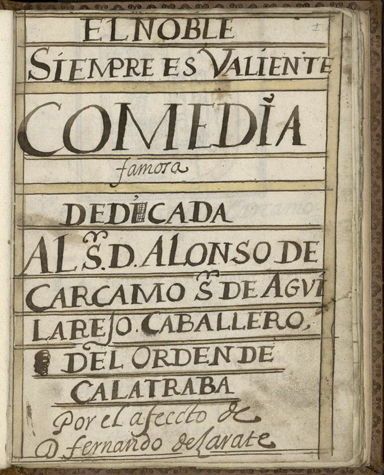 EL NOBLE
SIEMPRE ES VALIENTE
COMEDIA
famosa
DEDICADA
AL Sr. D. ALONSO DE
CARCAMO Sr. DE AGVI
LAREJO. CABALLERO,
DEL ORDEN DE
CALATRABA
Por el afeccto de
D fernando de Sarate